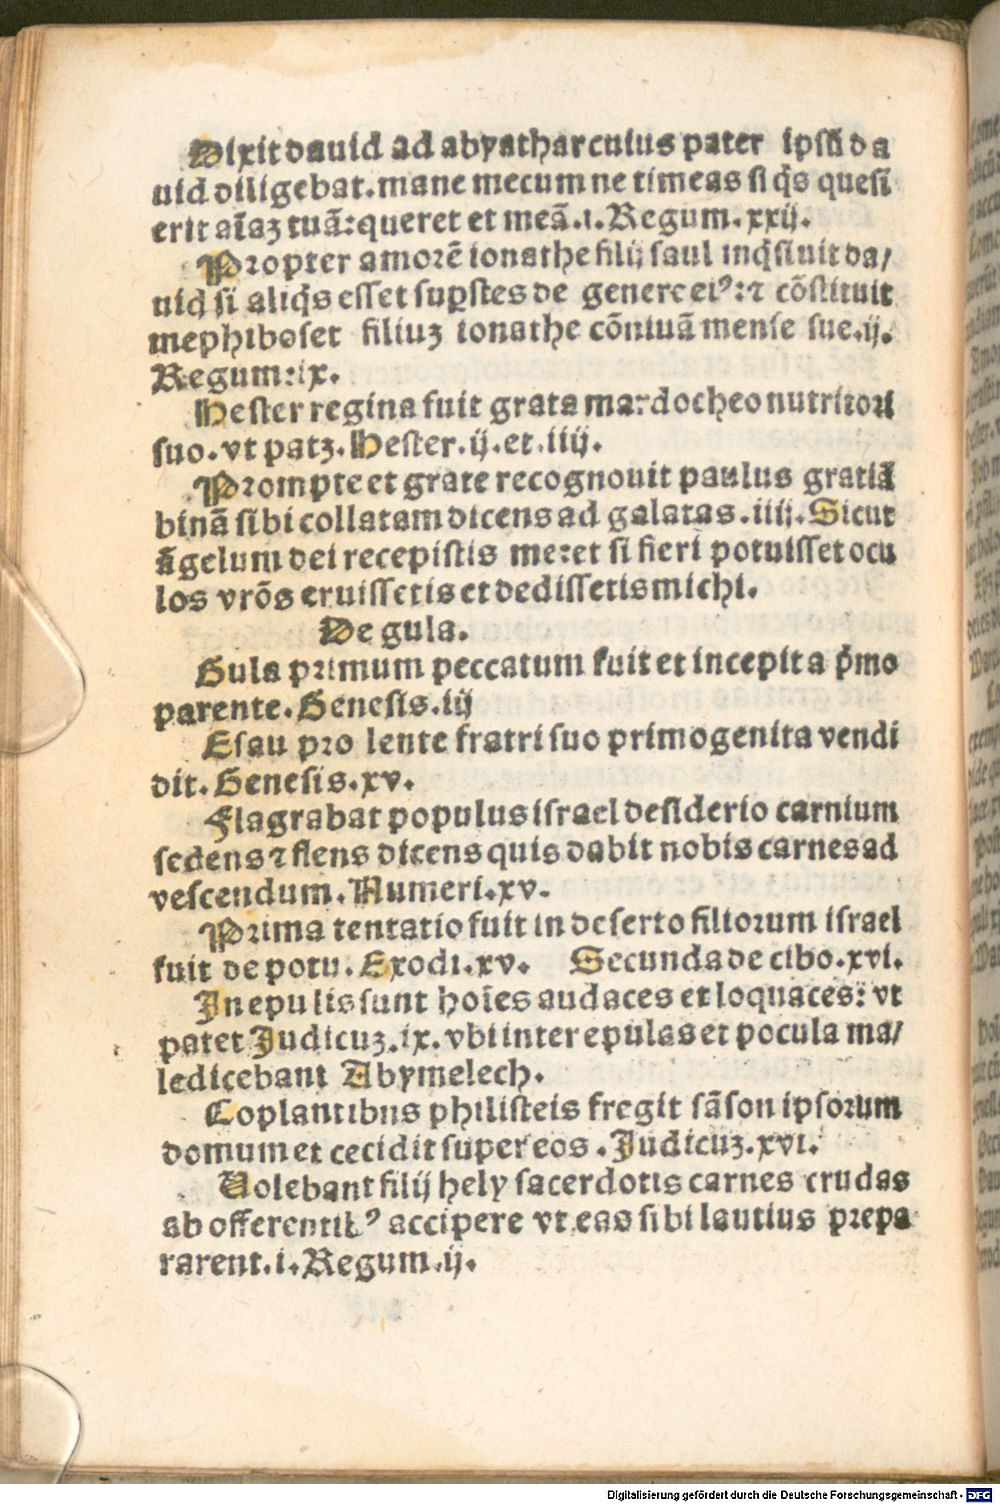 Dixit dauid ad abyathar cuius pater ipsū da
uid diligebat. mane mecum ne timeas si q̇s quesi
erit aīaꝫ tuā: queret et meā. i. Regum. xxij.
Propter amorē ionathe filij saul inq̇siuit da/
uid si aliq̇s esset suꝑstes de genere eiꝰ: ⁊ cōstituit
mephiboset filiuꝫ ionathe cōniuā mense sue. ij.
Regum: ix.
Hester regina fuit grata mardocheo nutritori
suo. vt patꝫ. Hester. ij. et. iij.
Prompte et grate recognouit paulus gratiā
binā sibi collatam dicens ad galatas. iiij. Sicut
āgelum dei recepistis me: et si fieri potuisset ocu
los vrōs eruissetis et dedissetis michi.
De gula.
Gula primum peccatum fuit et incepit a p̄mo
parente. Genesis. iij
Esau pro lente fratri suo primogenita vendi
dit. Genesis. xv.
Flagrabat populus israel desiderio carnium
sedens ⁊ flens dicens quis dabit nobis carnes ad
vescendum. Numeri. xv.
Prima tentatio fuit in deserto filiorum israel
fuit de potu. Exodi. xv. Secunda de cibo. xvi.
In epulis sunt hoīes audaces et loquaces: vt
patet Judicuꝫ. ix. vbi inter epulas et pocula ma/
ledicebant Abymelech.
Coplantibus philisteis fregit sāson ipsorum
domum et cecidit super eos. Judicuꝫ. xvi.
Uolebant filij hely sacerdotis carnes crudas
ab offerentibꝰ accipere vt eas sibi lautius prepa
rarent. i. Regum. ij.
Digitalisierung gefördert durch die Deutsche Forschungsgemeinschaft - DFG